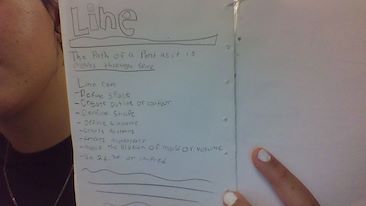 Line
The Path of a Point as it is
moves through space
Line can
- Define space
- Create outline or contour
- Define shape
- Define
- create
- create
- the illusion of mass or volume
- 2d, 3d or implied